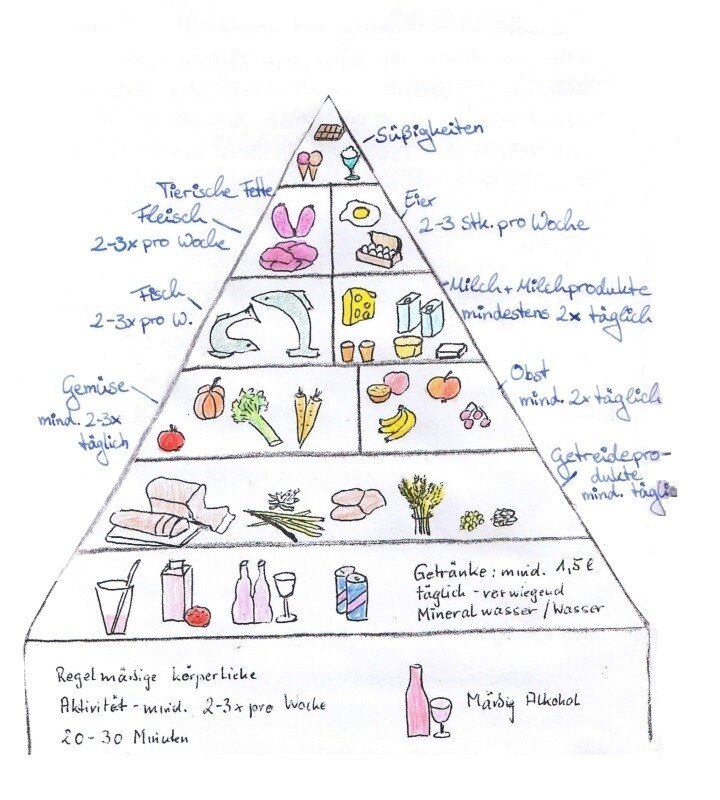 Süßigkeiten
Tierische Fette
Fleisch
2-3x pro Woche
Eier
2-3 Stk. pro Woche
Fisch
2-3x pro W.
Milch + Milchprodukte
mindestens 2x täglich
Gemüse
mind. 2-3x
täglich
Obst
mind. 2x täglich
Getreidepro-
dukte
mind. täglic
Getränke: mind. 1,5 l
täglich - vorwiegend
Mineralwasser / Wasser
Regelmäßige körperliche
Aktivität - mind. 2-3x pro Woche
20-30 Minuten
Mäßig Alkohol